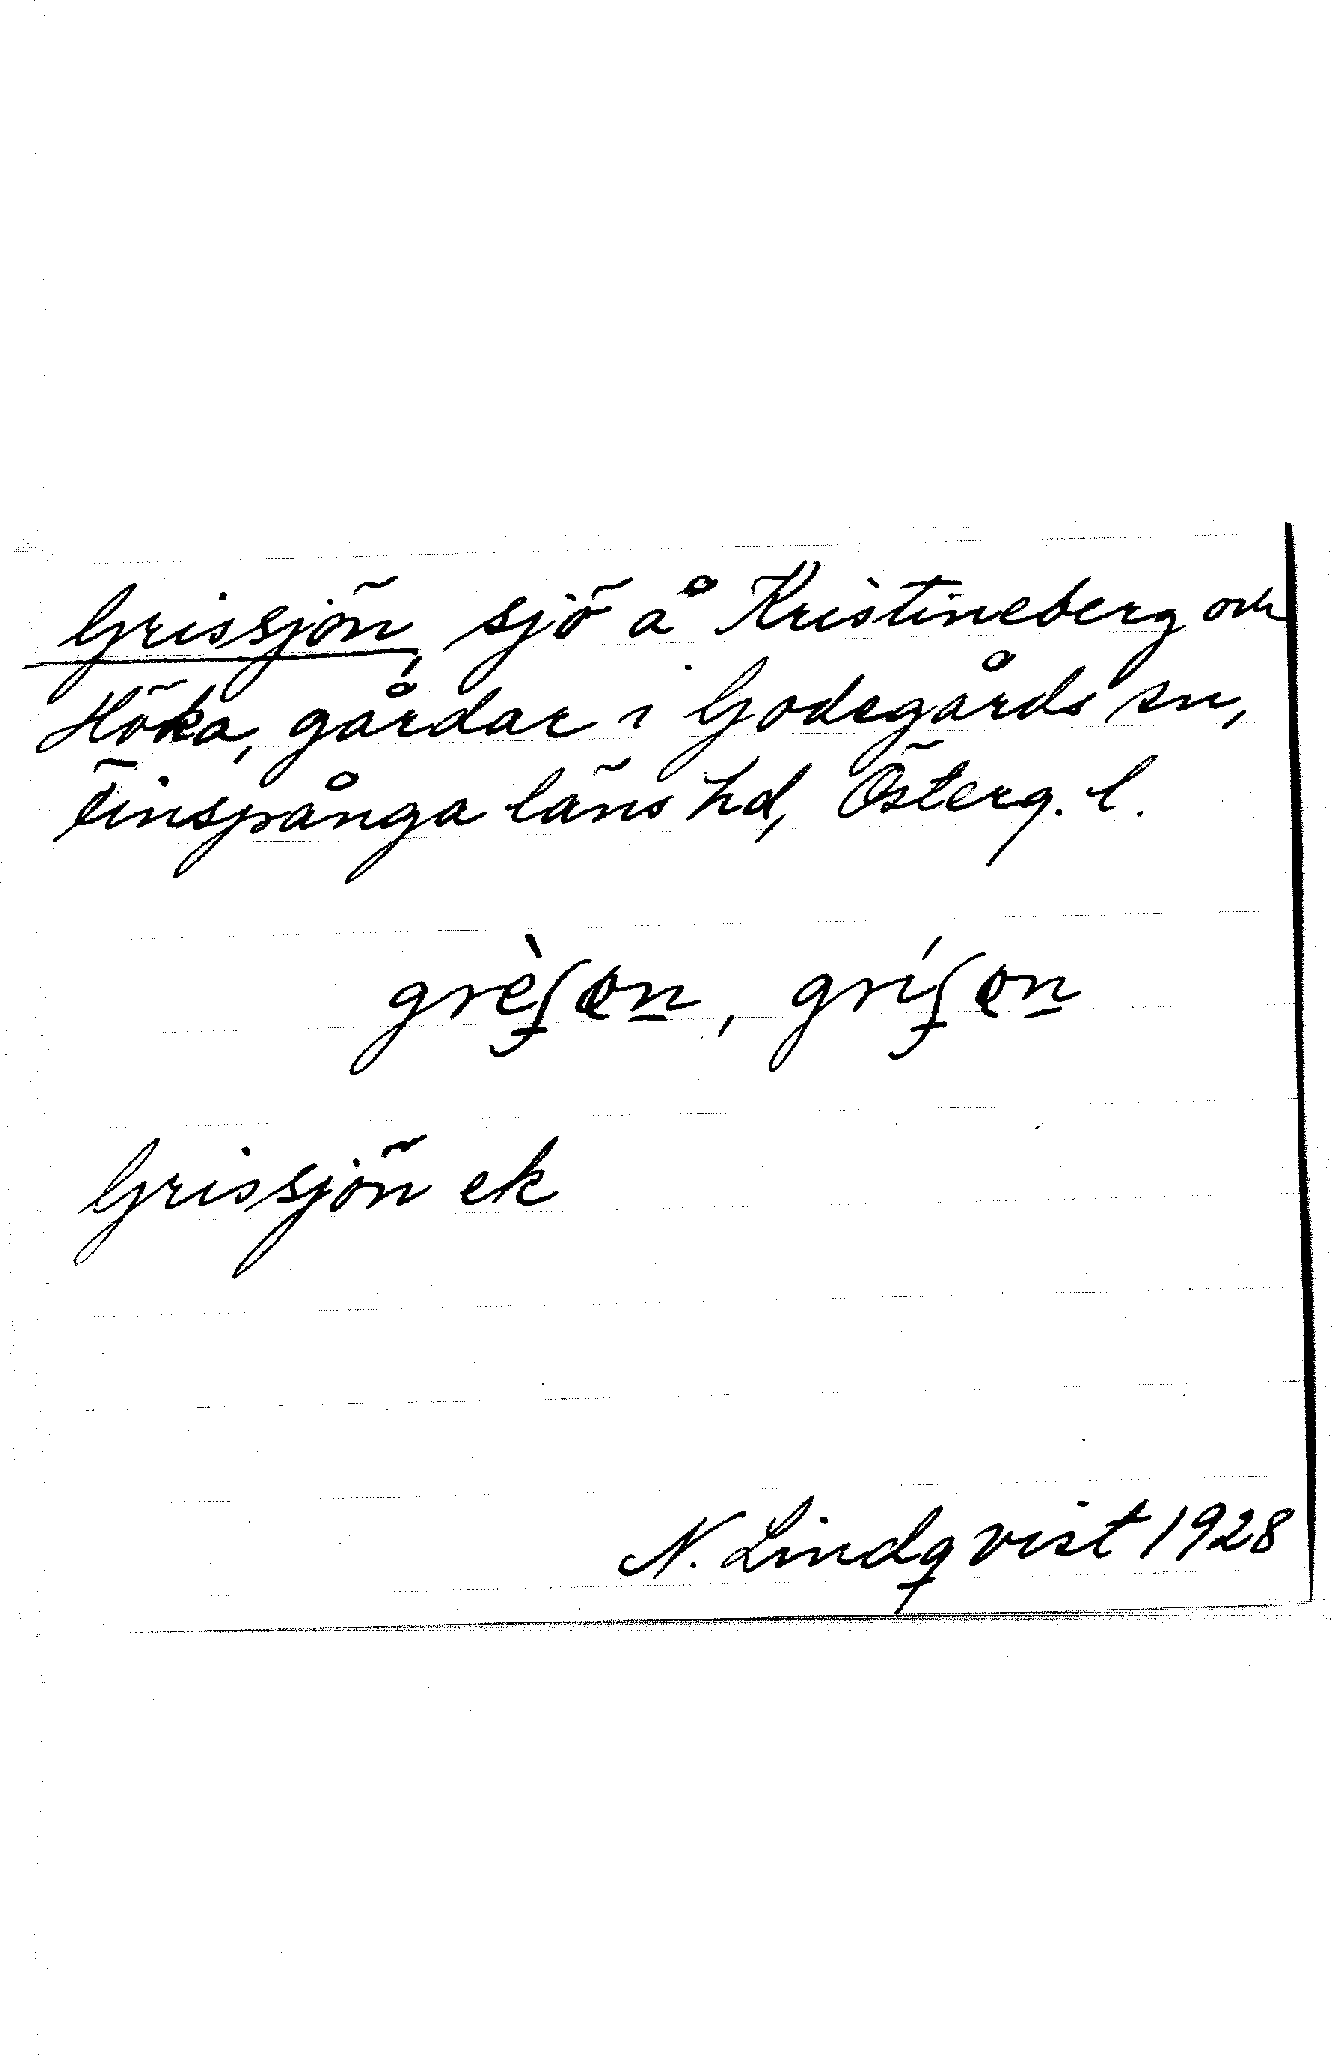 Grissjön, sjö å Kristineberg och
Höka, gårdar i Godegårds sn,
Finspånga läns hd, Österg. l.
grèʃɵn, gríʃɵn
Grissjön ek
N. Lindqvist 1928